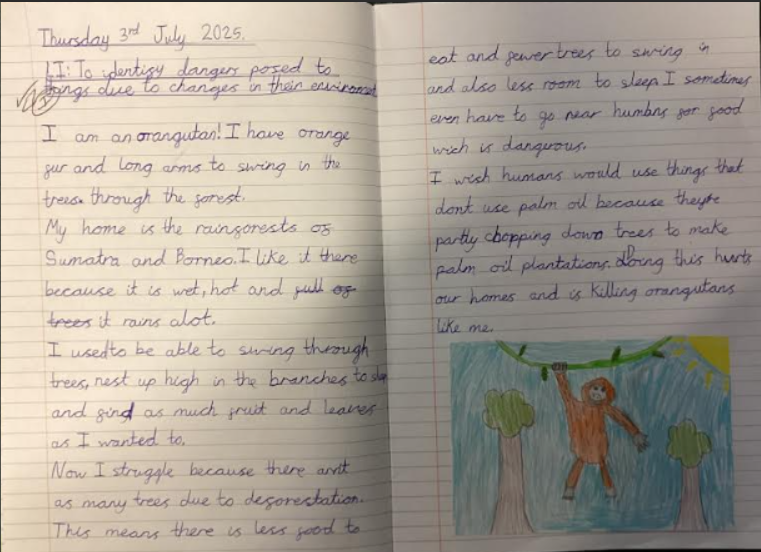 Thursday 3rd July 2025.
LI: To identify dangers posed to
things due to changes in their enviroment
I am an orangutan! I have orange
fur and long arms to swing in the
trees through the forest.
My home is the rainforests of
Sumatra and Borneo. I like it there
because it is wet, hot and full of
trees it rains alot.
I used to be able to swing through
trees, nest up high in the branches to sleep
and find as much fruit and leaves
as I wanted to.
Now I struggle because there arnt
as many trees due to deforestation.
This means there is less food to
eat and fewer trees to swing in
and also less room to sleep. I sometimes
even have to go near humans for food
wich is dangerous.
I wish humans would use things that
dont use palm oil because theyre
partly chopping down trees to make
palm oil plantations. Doing this hurts
our homes and is killing orangutans
like me.